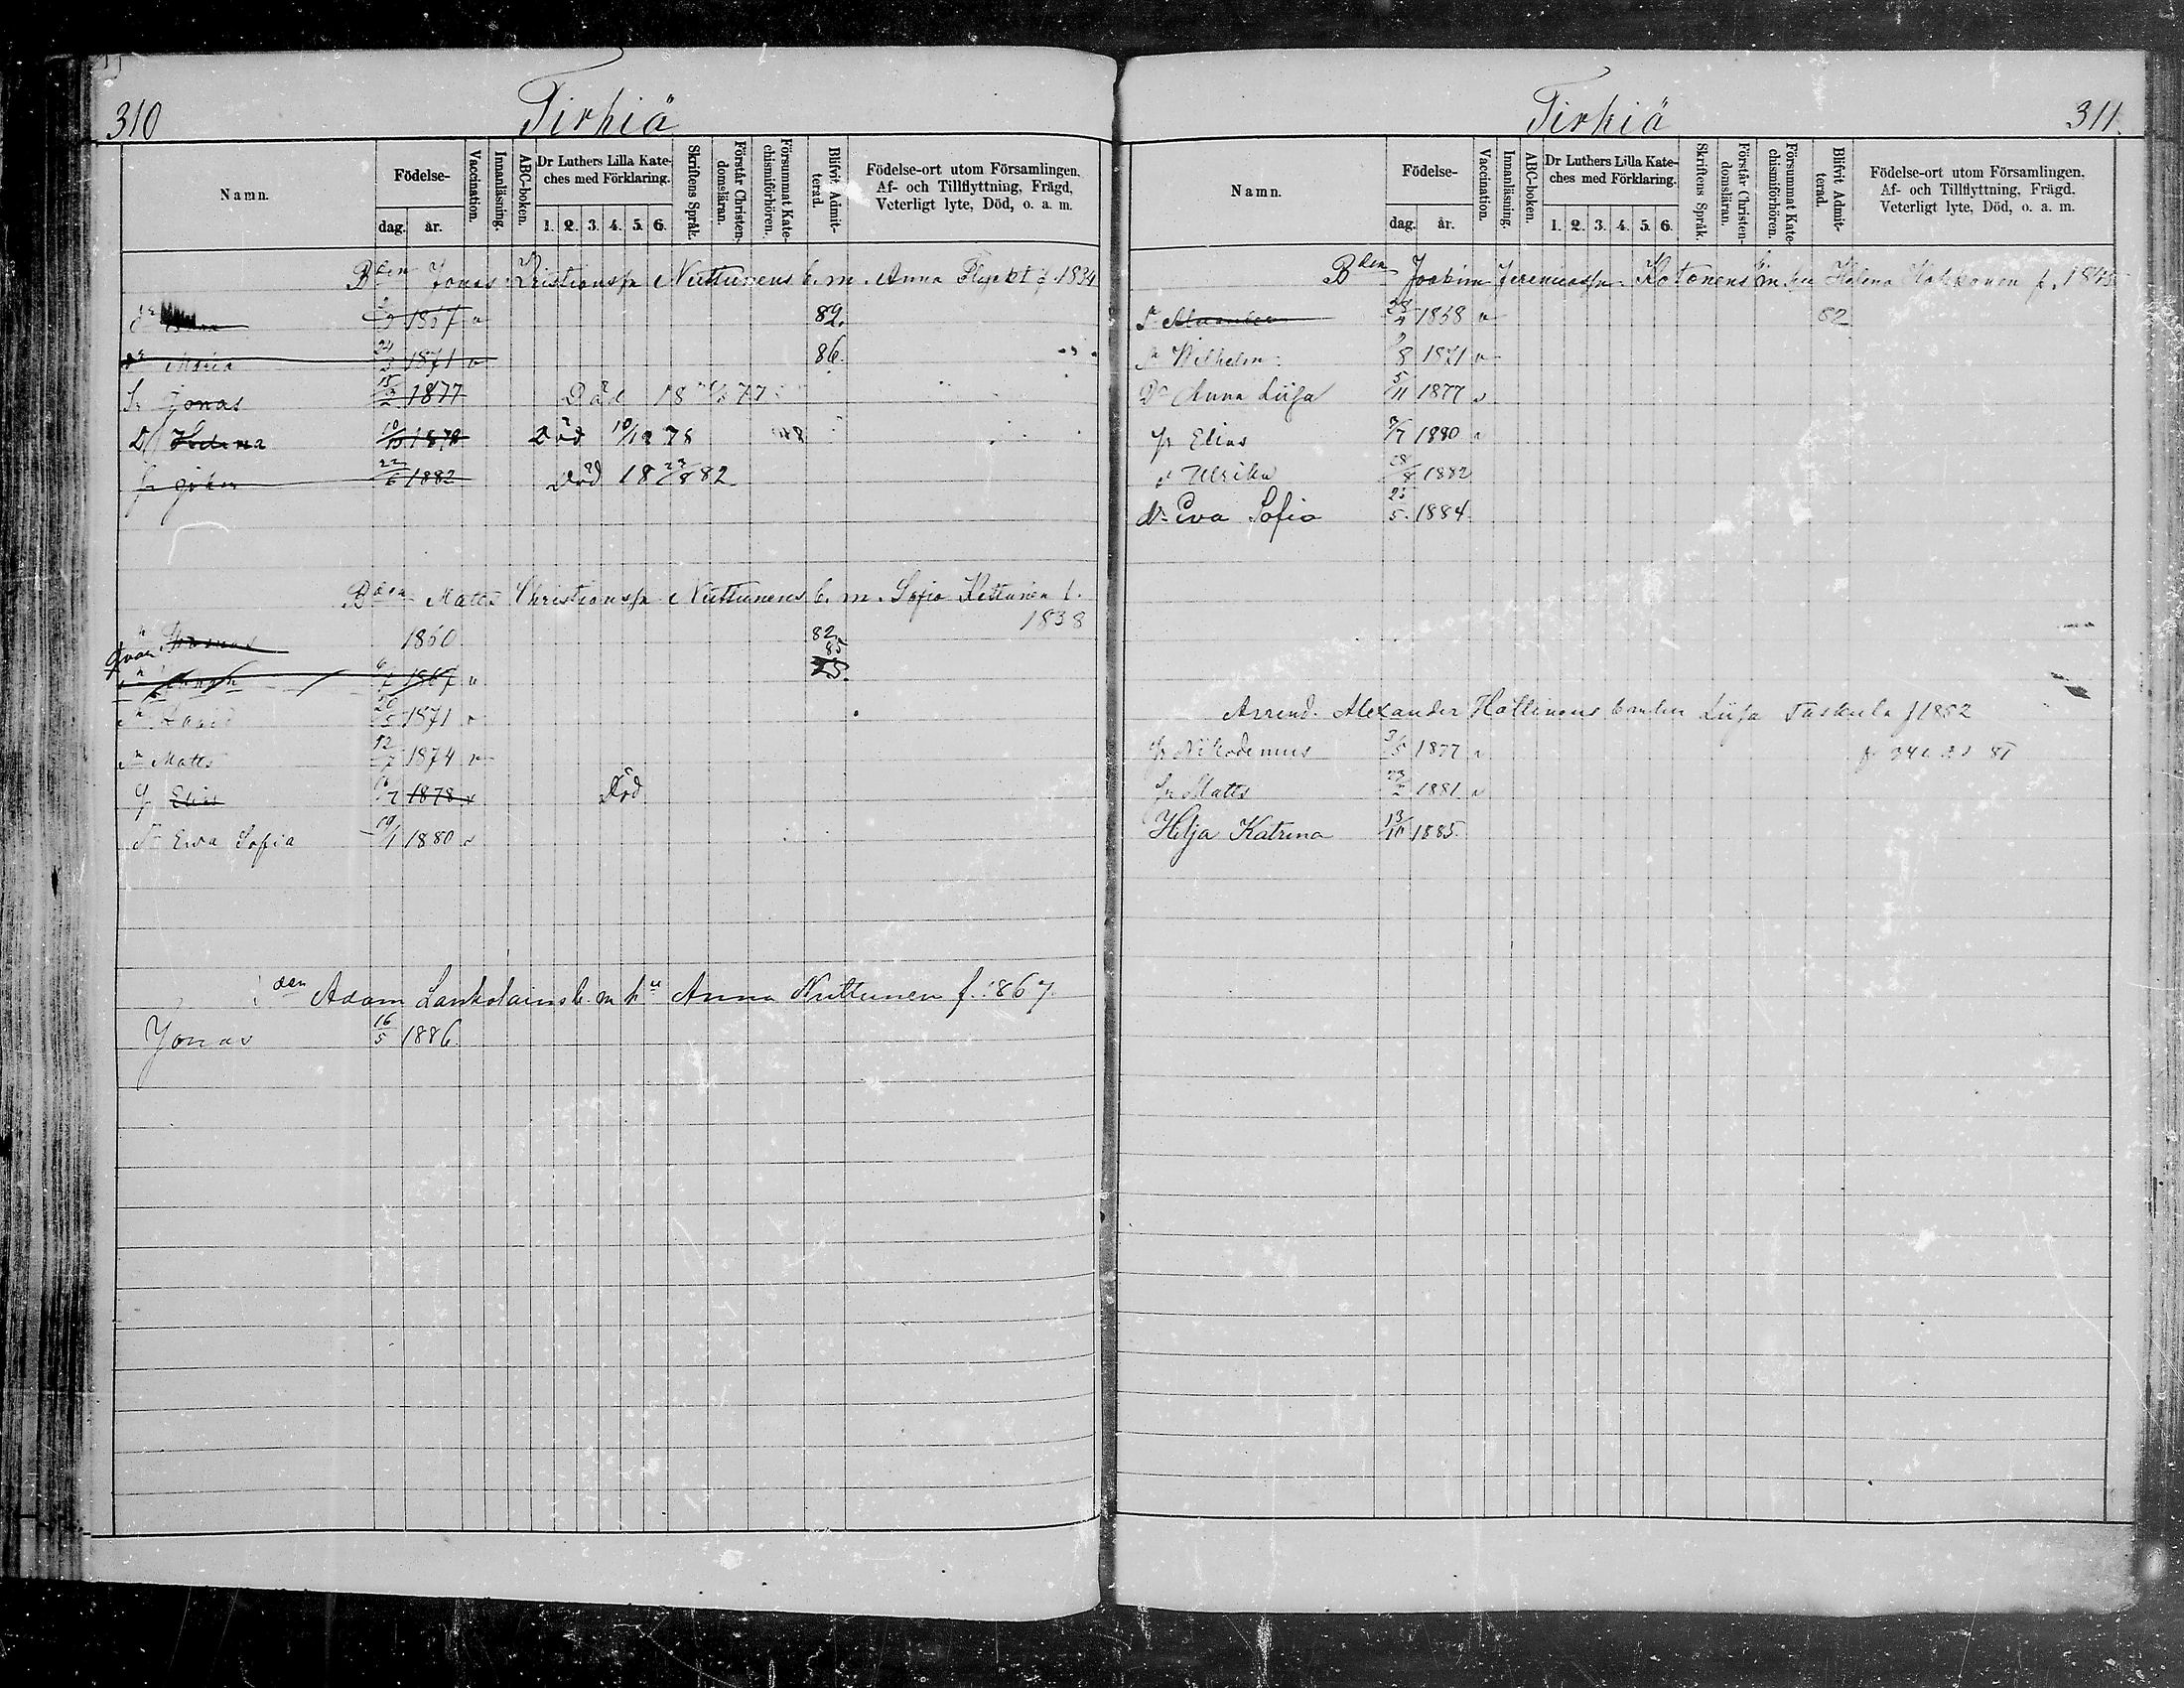 310
Tirkiä
Namn.
Födelse-
dag.
år.
Vaccination.
Innanläsning.
ABC-boken.
Dr Luthers Lilla Kate-
ches med Förklaring.
1. 2. 3. 4. 5. 6.
Skriftens Språk.
Förstår Christen-
domsläran.
Försummat Kate-
chismiförhören.
Blifvit Admit-
terad.
Födelse-ort utom Församlingen,
Af- och Tillflyttning, Frägd,
Veterligt lyte, Död, o. a. m.
Bden Jonas Kristianspn Nuttunens b. m. Anna Flyckt f 1834
1867 v 82.
Maria 24/3 1871 v 86.
Jonas 15/2 1877 Död 18 77
D Helena 10/10 1878 Död 10/12 78
Johan 22/6 1882 Död 18 23/8 82
Bden Matts Christianspn Nuttunens b. m. Sofia Kettunen f.
1838
Thomas 1860 82
85
1867 v 85.
David 20/5 1871 v
Matts 12/7 1874 v
Elias 7 1878 v Död
Eva Sofia 19/1 1880 v
den Adam Lankolainens b. m hu Anna Nuttunen f. 1867.
Jonas 16/5 1886.
Tirkiä
311.
Namn.
Födelse-
dag.
år.
Vaccination.
Innanläsning.
ABC-boken.
Dr Luthers Lilla Kate-
ches med Förklaring.
1. 2. 3. 4. 5. 6.
Skriftens Språk.
Förstår Christen-
domsläran.
Försummat Kate-
chismiförhören.
Blifvit Admit-
terad.
Födelse-ort utom Församlingen,
Af- och Tillflyttning, Frägd,
Veterligt lyte, Död, o. a. m.
Bden Joakim Jeremiaspn Kotonens b m hu Helena Kakkonen f. 1845
Alexander 1868 v 82
Wilhelm 8 1871 v
Dr Anna Liisa 5/11 1877 v
Elias 1880 v
Ulrika 28/8 1882
Dr Eva Sofia 25/5 1884
Arrend. Alexander Hallinens Liisa Taskula f 1852
Nikodemus 3/5 1877 v
Matts 23/2 1881 v
Hilja Katrina 13/10 1885.